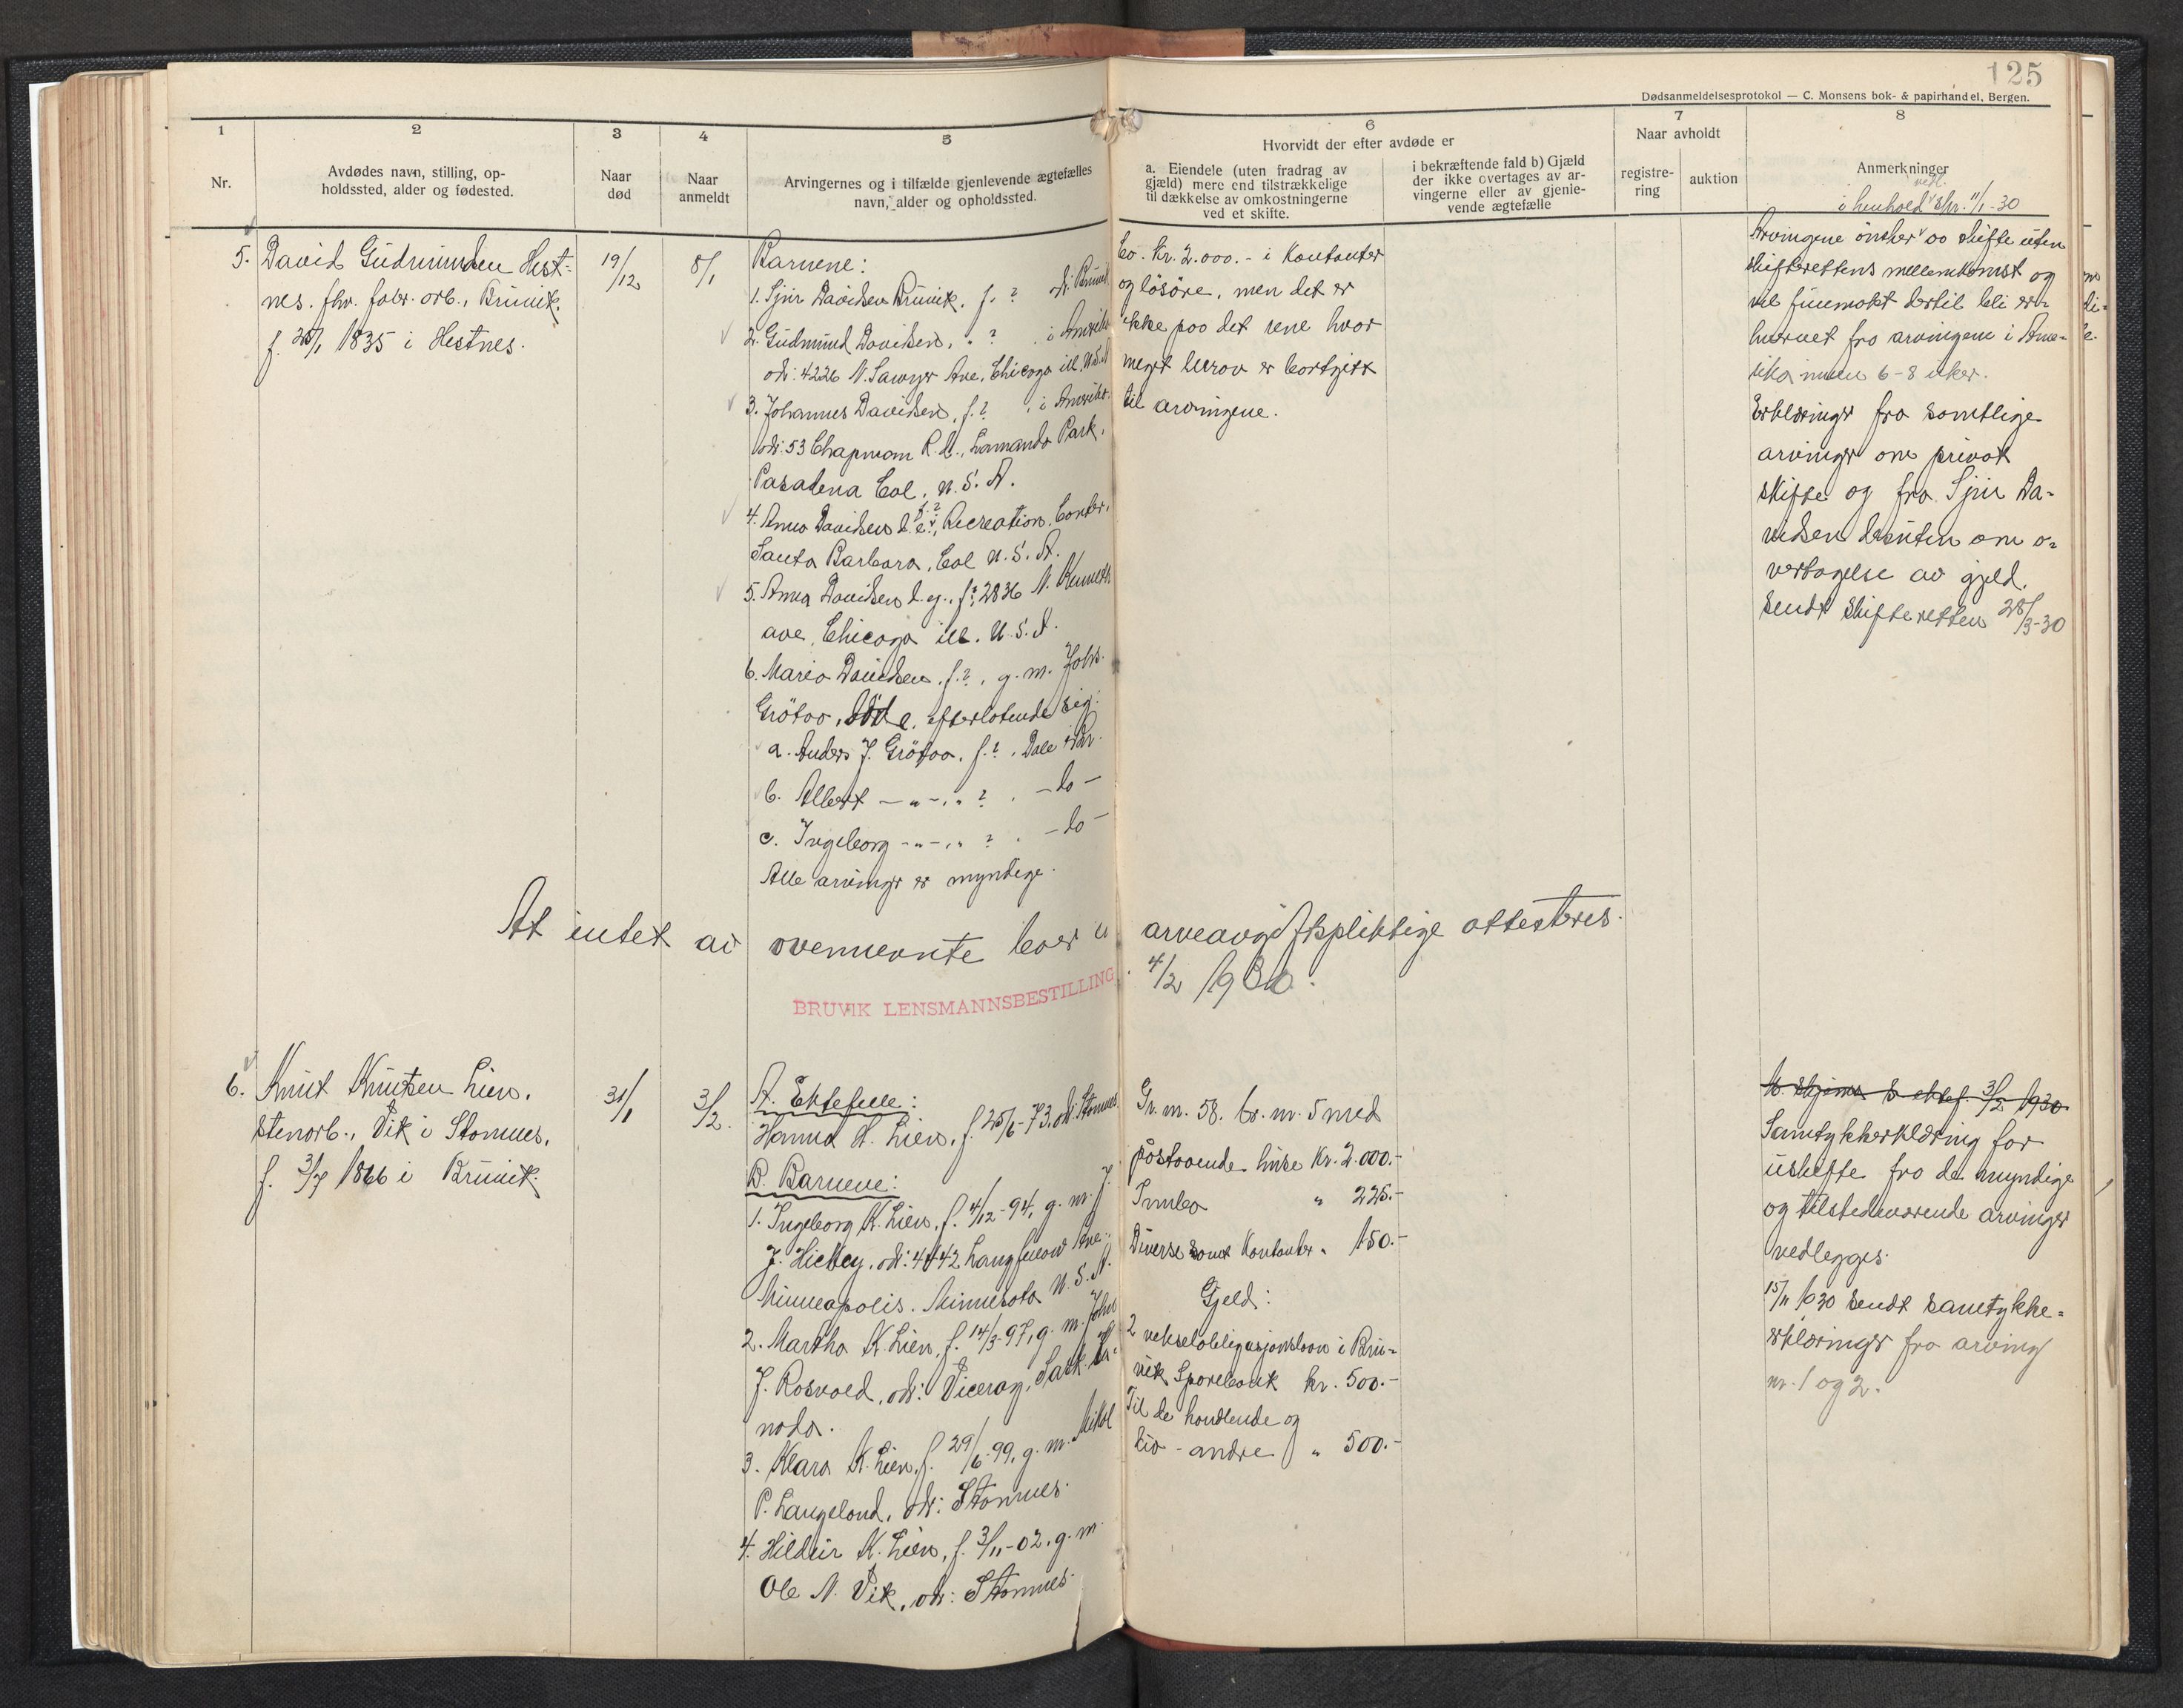 125
Dødsanmeldelsesprotokol — C. Monsens bok- & papirhandel, Bergen.
1
2
3
4
5
6
7
8
Nr.
Avdødes navn, stilling, op-
holdssted, alder og fødested.
Naar
død
Naar
anmeldt
Arvingernes og i tilfælde gjenlevende ægtefælles
navn, alder og opholdssted.
Hvorvidt der efter avdøde er
a. Eiendele (uten fradrag av
gjæld) mere end tilstrækkelige
til dækkelse av omkostningerne
ved et skifte.
i bekræftende fald b) Gjæld
der ikke overtages av ar-
vingerne eller av gjenle-
vende ægtefælle
Naar avholdt
registre-
ring
auktion
Anmerkninger
5.
David Gudmundsen Hest-
nes. fhv. fabr. arb., Bruvik.
f. 20/1 1835 i Hestnes.
19/12
8/1
Barnene:
1. Sjur Davidsen Bruvik, f. ? adr: Bruvik
2. Gudmund Davidsen, " ? , i Amerika
adr: 4226 N. Sawyer Ave, Chicago ill. U.S.A
3. Johannes Davidsen, f. ? , i Amerika.
adr: 53 Chapman R.d., Lamanda Park,
Pasadena Cal, U.S.A.
4. Anna Davidsen d.e., f. ?, Recreation Center,
Santa Barbara, Cal U.S.A.
5. Anna Davidsen d.y., f. ?, 2836 N. Kenneth
ave, Chicago ill. U.S.A.
6. Maria Davidsen, f. ?, g. m. Johs.
Grötaa, död e. efterlatende sig:
a. Anders J. Grötaa, f. ?, Dale i Br.
b. Albert — " — , " ? , — do —
c. Ingeborg - " - , " ? , — do —
Alle arvinger er myndige.
Ca. Kr. 2.000.- i Kontanter
og lösöre, men det er
ikke paa det rene hvor
meget herav er bortgitt
til arvingene.
i henhold vedl. skr. 11/1-30
Arvingene önsker aa skifte uten
skifterettens mellemkomst og
vil fuldmakt dertil bli er-
hvervet fra arvingene i Ame-
rika innen 6-8 uker.
Erklæringer fra samtlige
arvinger om privat
skifte og fra Sjur Da-
vidsen desuten om o-
vertagelse av gjeld.
Sendt Skifteretten 28/3-30
At intet av ovennevnte boer er arveavgiftspliktige attesteres.
BRUVIK LENSMANNSBESTILLING, 4/2 1930.
6.
Knut Knutsen Lien.
stenarb., Vik i Stamnes,
f. 3/7 1866 i Bruvik.
31/1
3/2.
A. Ektefelle:
Hanna H. Lien, f. 25/6-73, adr: Stamnes
B. Barnene:
1. Ingeborg K. Lien, f. 4/12-94, g. m. J.
J. Hickey, adr: 4442 Langfellow Ave.,
Minneapolis. Minnesota U.S.A.
2. Martha K. Lien, f. 14/3-97, g. m. Johs
J. Rosvold, adr: Viceray, Sask. Ka-
nada.
3. Klara K. Lien, f. 29/6-99, g. m. Mikal
P. Langeland, adr: Stamnes.
4. Hildur K. Lien, f. 3/11-02, g. m.
Ole N. Vik, adr: Stamnes.
Gr. m. 58. br. m. 5 med
påstaaende huse Kr. 2.000.-
Innbo " 225.-
Diverse samt Kontanter " 150.-
Gjeld:
2 vekselobligasjonslaan i Bru-
vik Sparebank kr. 500.-
Til de handlende og
div - andre " 500.-
3/2 1930
Samtykkerklæring for
uskifte fra de myndige
og tilstedeværende arvinger
vedlegges.
15/11 1930 sendt samtykke-
erklæringer fra arving
nr. 1 og 2.